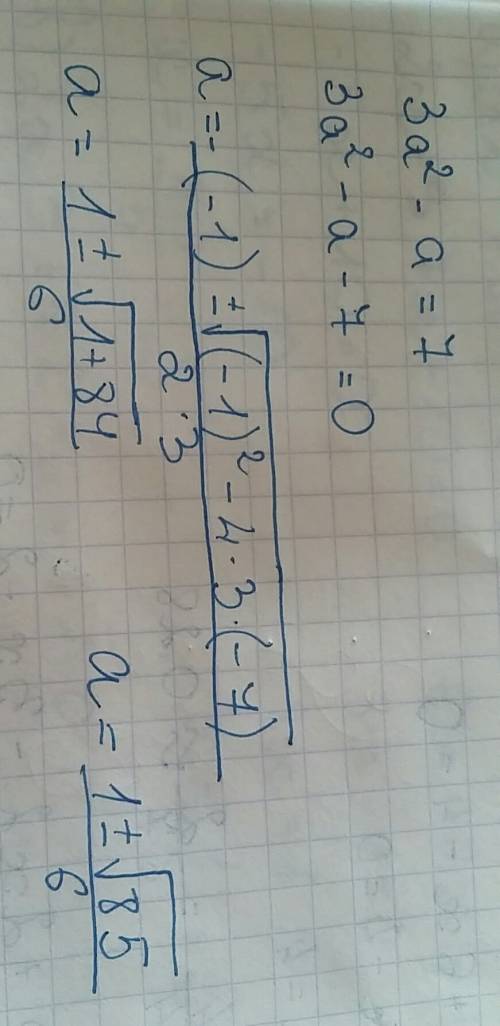 3a² - a = 7
3a² - a - 7 = 0
a = -(-1) ± √((-1)² - 4·3·(-7)) / 2·3
a = 1 ± √(1+84) / 6
a = 1 ± √85 / 6